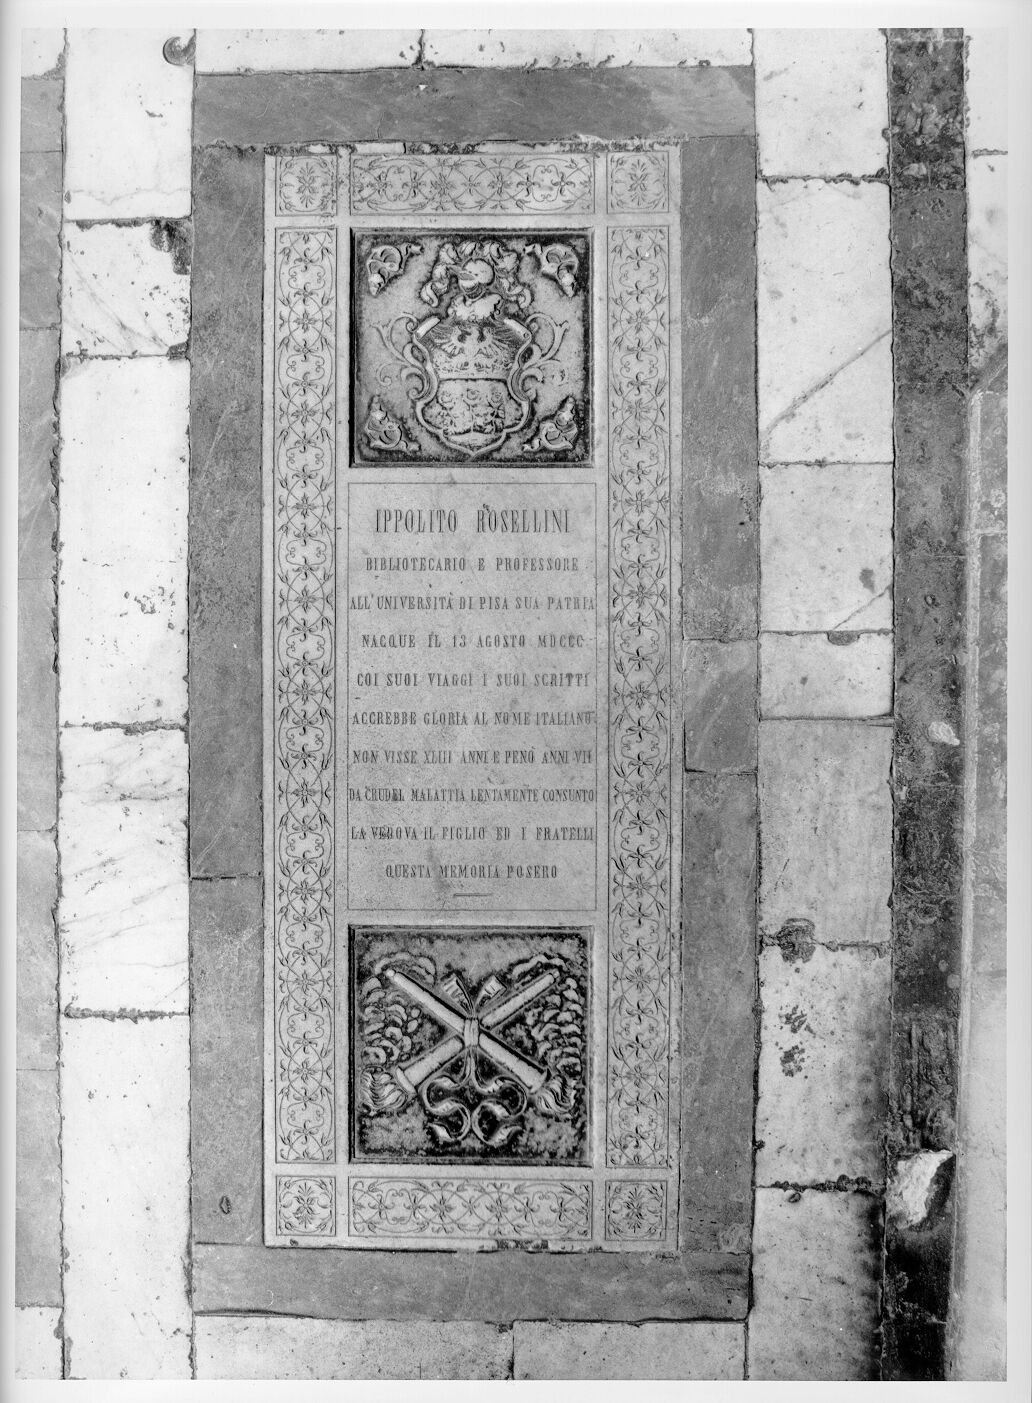 IPPOLITO ROSELLINI
BIBLIOTECARIO E PROFESSORE
ALL'UNIVERSITÀ DI PISA SUA PATRIA
NACQUE IL 13 AGOSTO MDCCC
COI SUOI VIAGGI I SUOI SCRITTI
ACCREBBE GLORIA AL NOME ITALIANO
NON VISSE XLIII ANNI E PENÒ ANNI VII
DA CRUDEL MALATTIA LENTAMENTE CONSUNTO
LA VEDOVA IL FIGLIO ED I FRATELLI
QUESTA MEMORIA POSERO